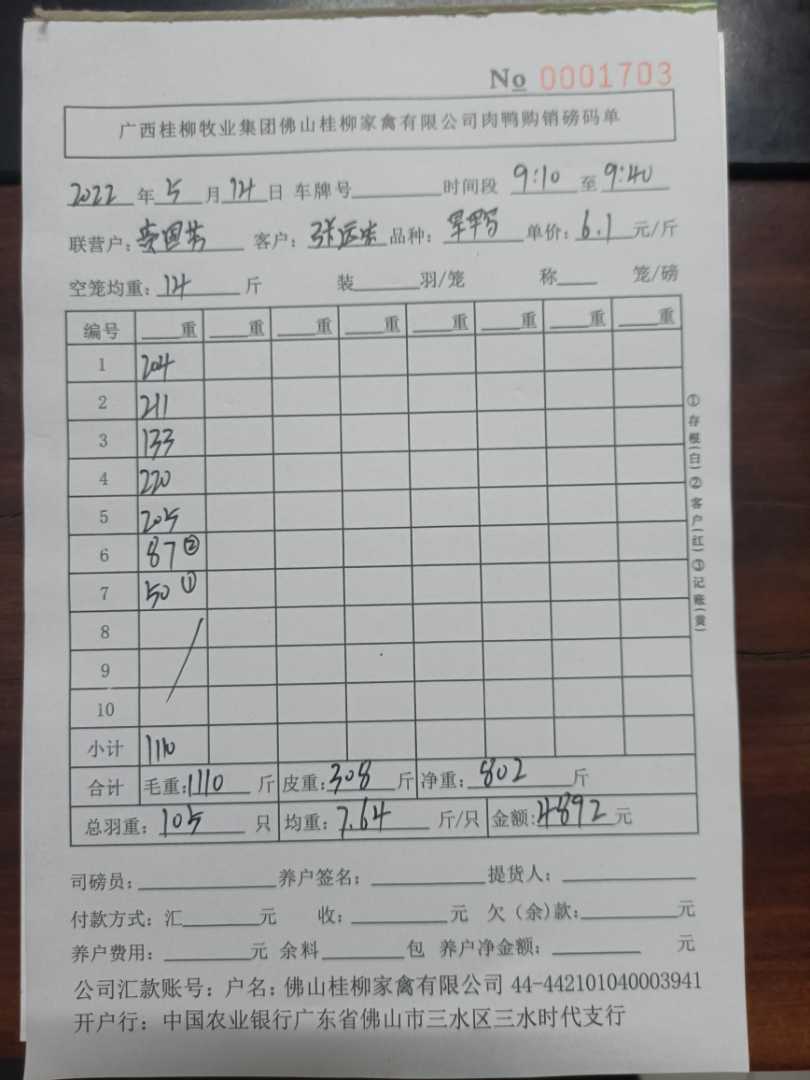 No 0001703
广西桂柳牧业集团佛山桂柳家禽有限公司肉鸭购销磅码单
2022年5月14日 车牌号 时间段 9:10 至 9:40
联营户: 客户: 张远 品种: 单价: 6.1 元/斤
空笼均重: 14 斤 装 羽/笼 称 笼/磅
编号 重 重 重 重 重 重 重 重
1 204
2 211
3 133
4 220
5 205
6 87 ②
7 50 ①
8
9
10
小计 1110
合计 毛重: 1110 斤 皮重: 308 斤 净重: 802 斤
总羽重: 105 只 均重: 7.64 斤/只 金额: 4892 元
司磅员: 养户签名: 提货人:
付款方式: 汇 元 收: 元 欠（余）款: 元
养户费用: 元 余料 包 养户净金额: 元
公司汇款账号: 户名: 佛山桂柳家禽有限公司 44-442101040003941
开户行: 中国农业银行广东省佛山市三水区三水时代支行
①存根(白)②客户(红)③记账(黄)